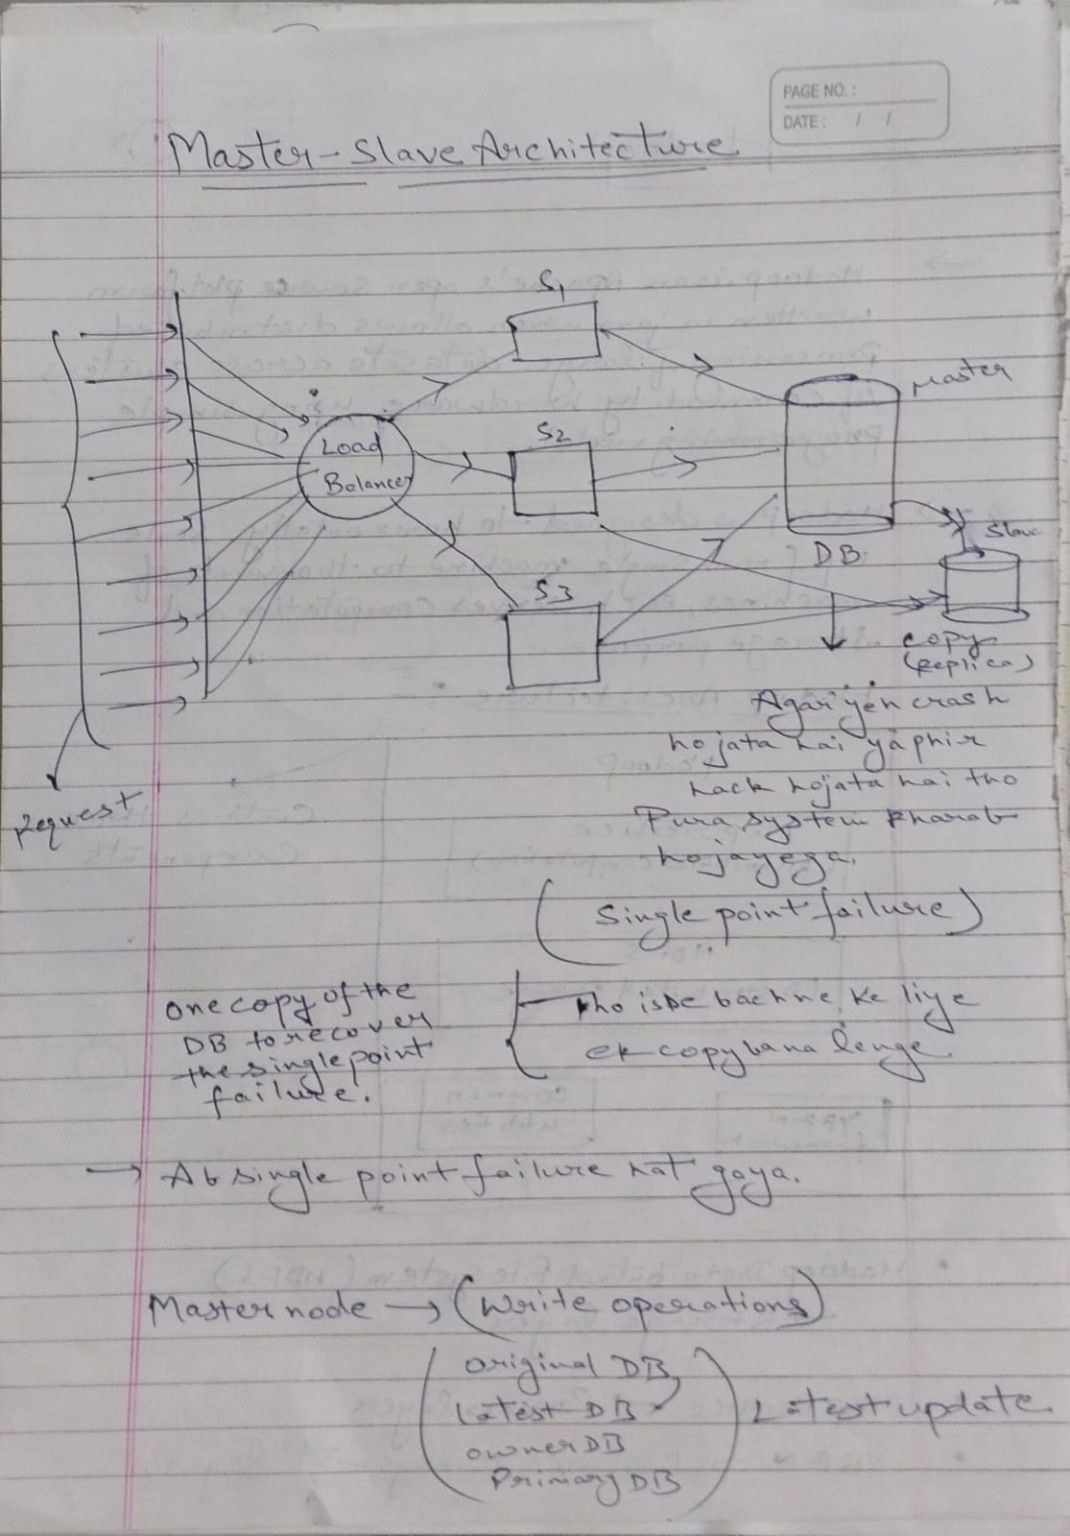 PAGE NO.:
DATE: / /
Master-Slave Architecture
S1
Master
Load
Balancer
S2
Slave
DB
S3
copy
(Replica)
Request
Agar yeh crash
hojata hai yaphir
hack hojata hai tho
Pura system kharab
hojayega.
(Single point failure)
One copy of the
DB to recover
the single point
failure.
Tho isse bachne ke liye
ek copy bana lenge.
→ Ab single point failure hat gaya.
Master node → (Write operations)
Original DB
Latest DB
owner DB
Primary DB
Latest update.